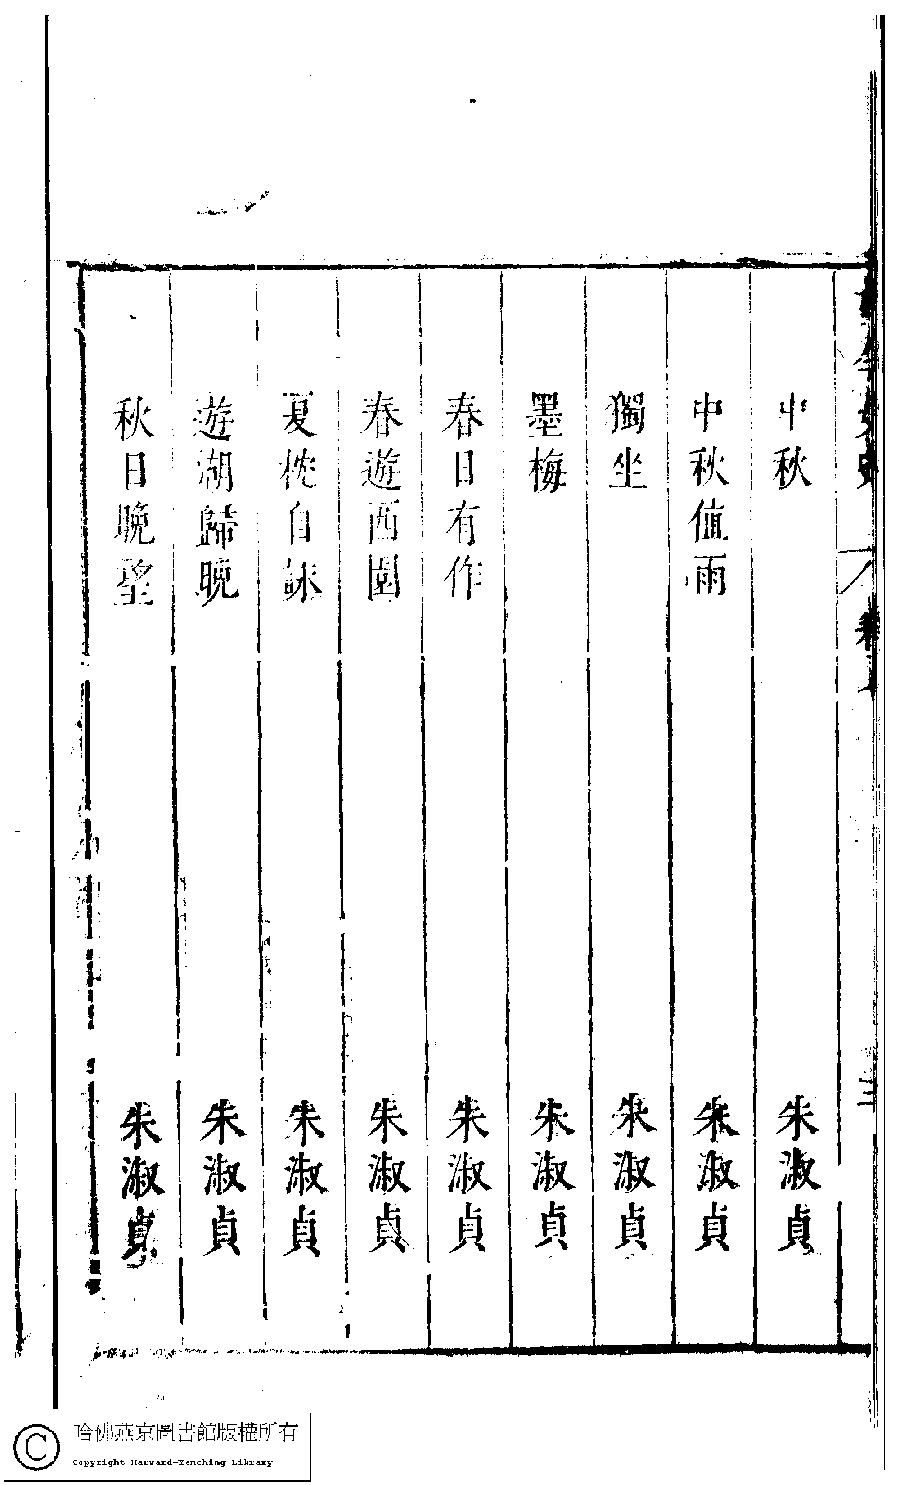 中秋 朱淑貞
中秋值雨 朱淑貞
獨坐 朱淑貞
墨梅 朱淑貞
春日有作 朱淑貞
春遊西園 朱淑貞
夏枕自詠 朱淑貞
遊湖歸晚 朱淑貞
秋日晚望 朱淑貞
哈佛燕京圖書館版權所有
Copyright Harvard-Yenching Library